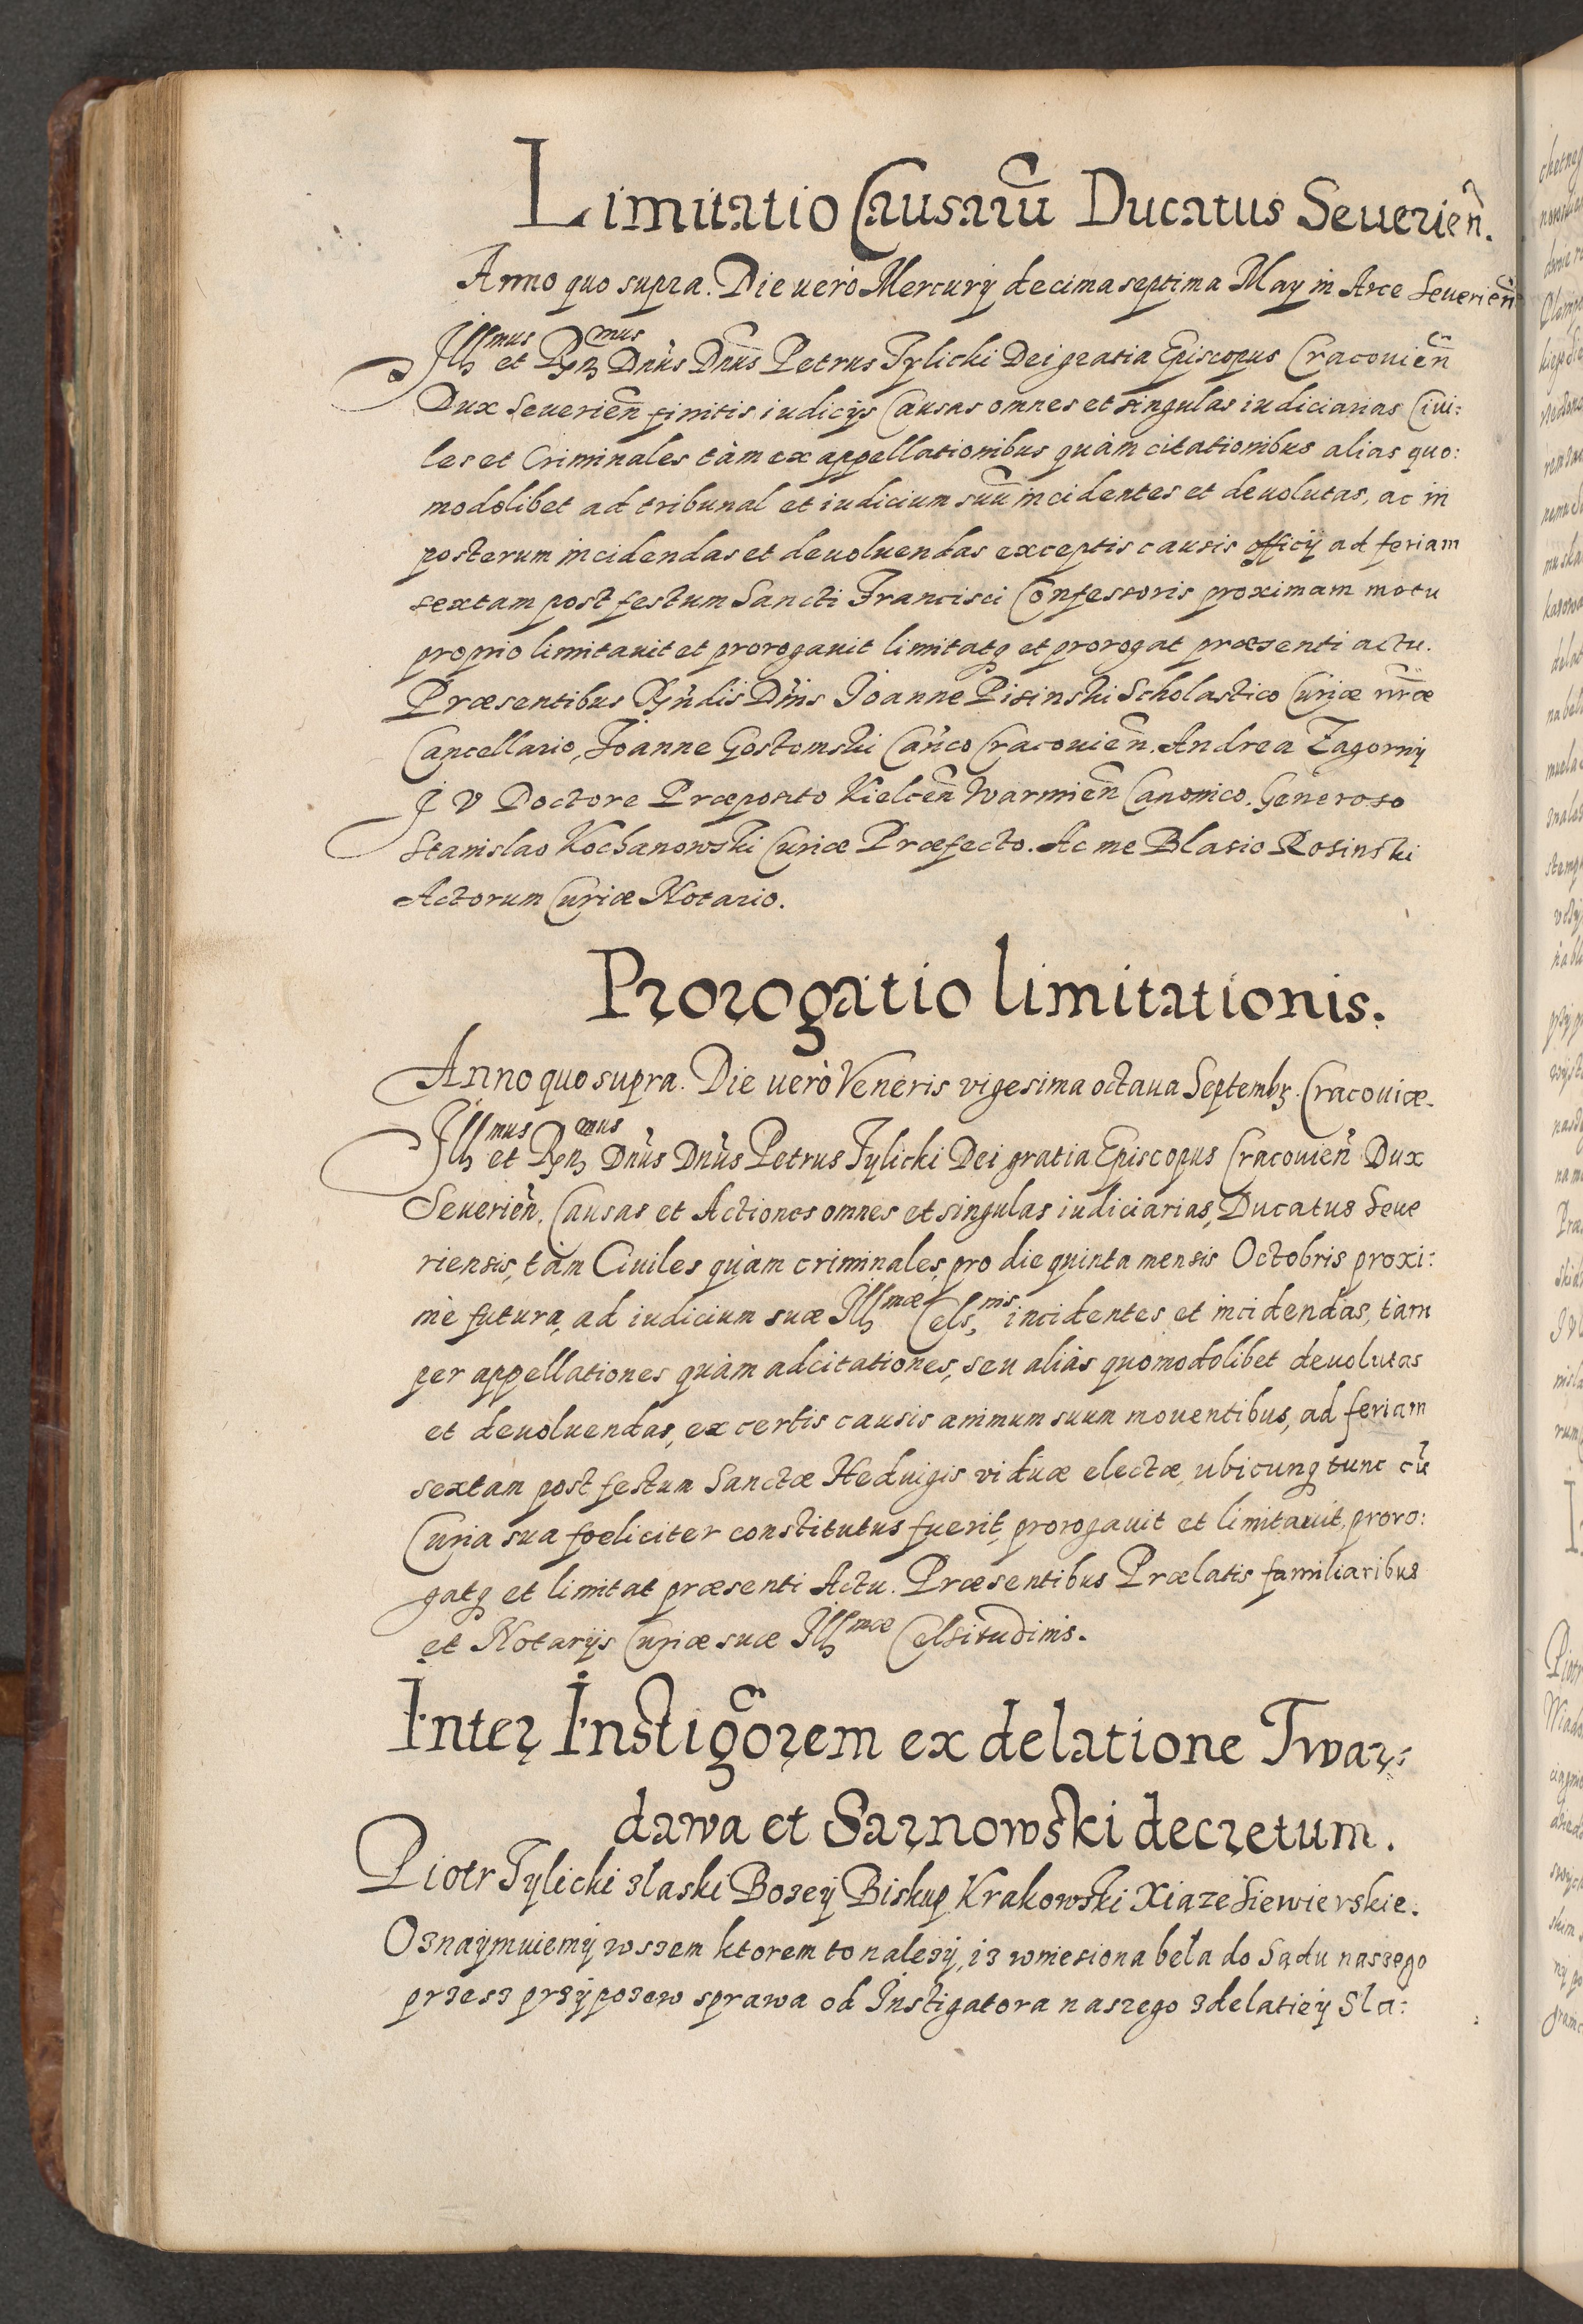 Limitatio Causarū Ducatus Seuerień.
Anno quo supra. Die uerò Mercurÿ decima septima Maÿ in Arce Seuerień
Illmus et Rndmus Dnus Dnus Petrus Tylicki Dei gratia Episcopus Cracouień
Dux Seuerień finitis iudicÿs Causas omnes et singulas iudiciarias Ciui:
les et Criminales tàm ex appellationibus quàm citationibus alias quo:
modolibet ad tribunal et iudicium suū incidentes et deuolutas, ac in
posterum incidendas et deuoluendas exceptis causis officÿ ad feriam
sextam post festum Sancti Francisci Confessoris proximam motu
proprio limitauit et prorogauit limitatq et prorogat præsenti actu.
Præsentibus Rndis Dnis Joanne Pisinski Scholastico Curiæ nræ
Cancellario, Joanne Gostomski Canco Cracouień. Andrea Zagornÿ
J V Doctore Præposito Kielceń Warmień Canonico. Generoso
Stanislao Kochanowski Curiæ Præfecto. Ac me Blasio Rosinski
Actorum Curiæ Notario.
Prorogatio limitationis.
Anno quo supra. Die uerò Veneris vigesima octaua Septembʒ. Cracouiæ.
Illmus et Rndmus Dnus Dnus Petrus Tylicki Dei gratia Episcopus Cracouień Dux
Seuerień. Causas et Actiones omnes et singulas iudiciarias, Ducatus Seue
riensis, tàm Ciuiles quàm criminales, pro die quinta mensis Octobris proxi:
mè futura, ad iudicium suæ Illmæ Cels,nis incidentes et incidendas, tàm
per appellationes quàm adcitationes, seu aliàs quomodolibet deuolutas
et deuoluendas, ex certis causis animum suum mouentibus, ad feriam
sextam post festum Sanctæ Heduigis viduæ electæ, ubicunq tunc cū
Curia sua fœliciter constitutus fuerit, prorogauit et limitauit, proro:
gatq et limitat præsenti Actu. Præsentibus Prælatis familiaribus
et Notarÿs Curiæ suæ Illmæ Celsitudinis.
Inter Instigōrem ex delatione Twar:
dawa et Sarnowski decretum.
Piotr Tylicki ʒ laski Boʒeÿ Biskup Krakowski Xiaze Siewierskie.
Oʒnaÿmuiemÿ wsʒem ktorem to naleʒÿ, iʒ wniesiona beła do Sądu nasʒego
prʒesʒ prʒÿpoʒew sprawa od Instigatora naszego ʒ delatieÿ Sla: